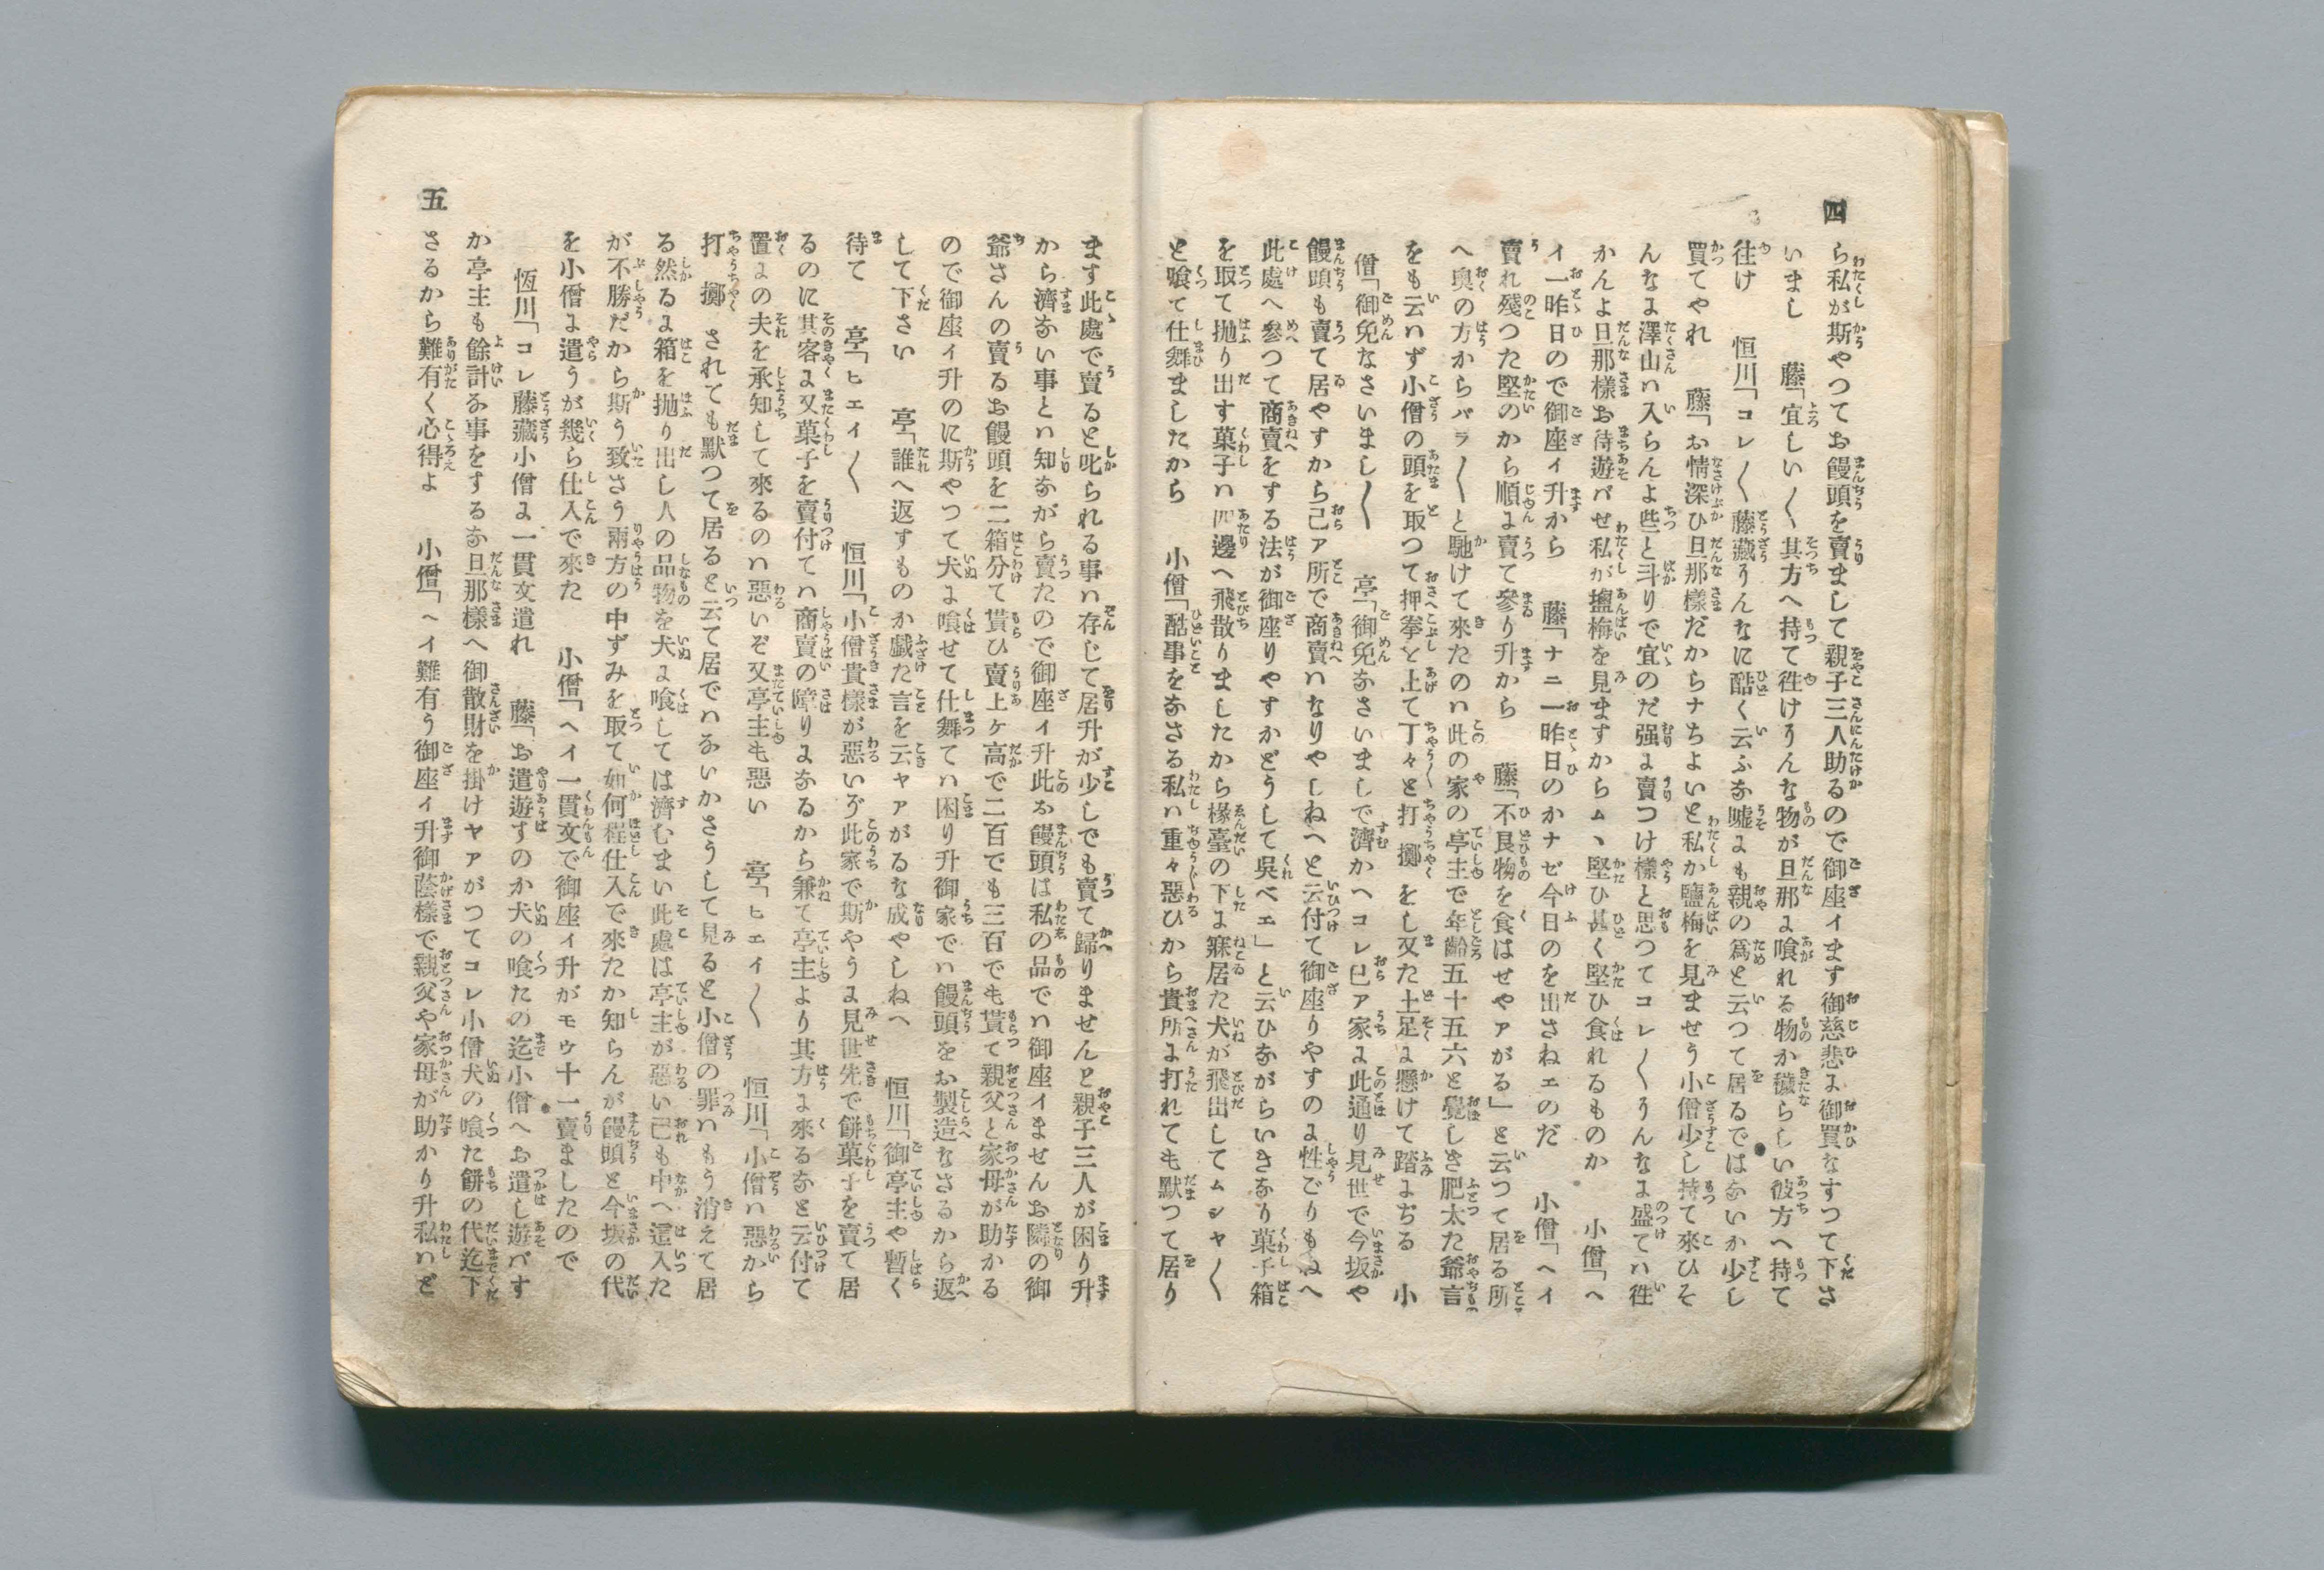 四
ら私が斯やつてお饅頭を賣まして親子三人助るので御座イます御慈悲に御買なすつて下さ
いまし　藤「宜しい〱其方へ持て徃けうんな物が旦那に喰れる物か穢らしい彼方へ持て
徃け　恒川「コレ〱藤藏うんなに酷く云ふな嘘にも親の爲と云つて居るではないか少し
買てやれ　藤「お情深ひ旦那様だからナちよいと私か鹽梅を見ませう小僧少し持て來ひそ
んなに澤山ハ入らんよ些と斗りで宜のだ强に賣つけ様と思つてコレ〱うんなに盛てハ徃
かんよ旦那樣お待遊バせ私が塩梅を見ますからム、堅ひ甚く堅ひ食れるものか　小僧「ヘ
イ一昨日ので御座イ升から　藤「ナニ一昨日のかナゼ今日のを出さねエのだ　小僧「ヘイ
賣れ殘つた堅のから順に賣て參り升から　藤「不良物を食はせやアがる」と云つて居る所
へ奥の方からバラ〱と馳けて來たのハ此の家の亭主で年齢五十五六と覺しき肥太た爺言
をも云ハず小僧の頭を取つて押拳と上て丁々と打擲をし又た土足に懸けて踏にぢる　小
僧「御免なさいまし〱　亭「御免なさいましで濟かヘコレ己ア家に此通り見世で今坂や
饅頭も賣て居やすから己ア所で商賣ハなりやしねへと云付て御座りやすのに性こりもねへ
此處へ參つて商賣をする法が御座りやすかどうして呉ベエ」と云ひながらいきなり菓子箱
を取て抛り出す菓子ハ四邊へ飛散りましたから椽臺の下に寐居た犬が飛出してムシヤ〱
と喰て仕舞ましたから　小僧「酷事をなさる私ハ重々惡ひから貴所に打れても默つて居り
五
ます此處で賣ると叱られる事ハ存じて居升が少しでも賣て歸りませんと親子三人が困り升
から濟ない事とハ知ながら賣たので御座イ升此お饅頭は私の品でハ御座イませんお隣の御
爺さんの賣るお饅頭を二箱分て貰ひ賣上ヶ高で二百でも三百でも貰て親父と家母が助かる
ので御座イ升のに斯やつて犬に喰せて仕舞てハ困り升御家でハ饅頭をお製造なさるから返
して下さい　亭「誰へ返すものか戯た言を云ヤアがるな成やしねへ　恒川「御亭主や暫く
待て　亭「ヒエイ〱　恒川「小僧貴樣が惡いゾ此家で斯やうに見世先で餅菓子を賣て居
るのに其客に又菓子を賣付てハ商賣の障りになるから兼て亭主より其方に來るなと云付て
置にの夫を承知して來るのハ惡いぞ又亭主も惡い　亭「ヒエイ〱　恒川「小僧ハ惡から
打擲されても默つて居ると云て居でハないかさうして見ると小僧の罪ハもう消えて居
る然るに箱を抛り出し人の品物を犬に喰しては濟むまい此處は亭主が惡い己も中へ這入た
が不勝だから斯う致さう兩方の中ずみを取て如何程仕入で來たか知らんが饅頭と今坂の代
を小僧に遣うが幾ら仕入で來た　小僧「ヘイ一貫文で御座イ升がモウ十一賣ましたので
恆川「コレ藤藏小僧に一貫文遣れ　藤「お遣遊すのか犬の喰たの迄小僧へお遣し遊バす
か亭主も餘計な事をするな旦那樣へ御散財を掛けヤアがつてコレ小僧犬の喰た餅の代迄下
さるから難有く心得よ　小僧「ヘイ難有う御座イ升御蔭樣で親父や家母が助かり升私ハど